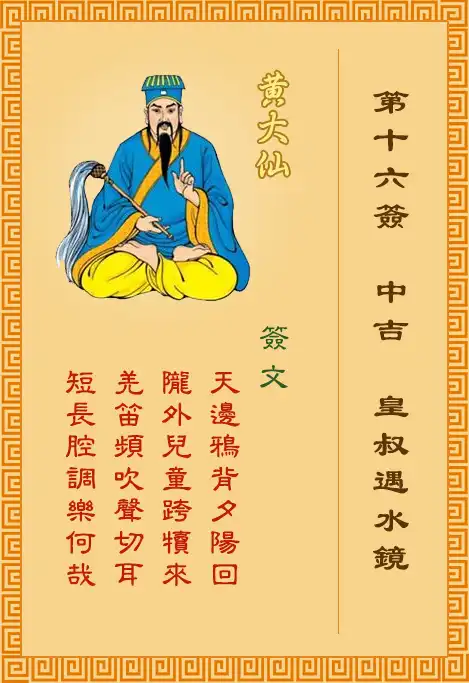 第十六簽 中吉 皇叔遇水鏡
黄大仙
簽文
天邊鴉背夕陽回
隴外兒童跨犢來
羌笛頻吹聲切耳
短長腔調樂何哉